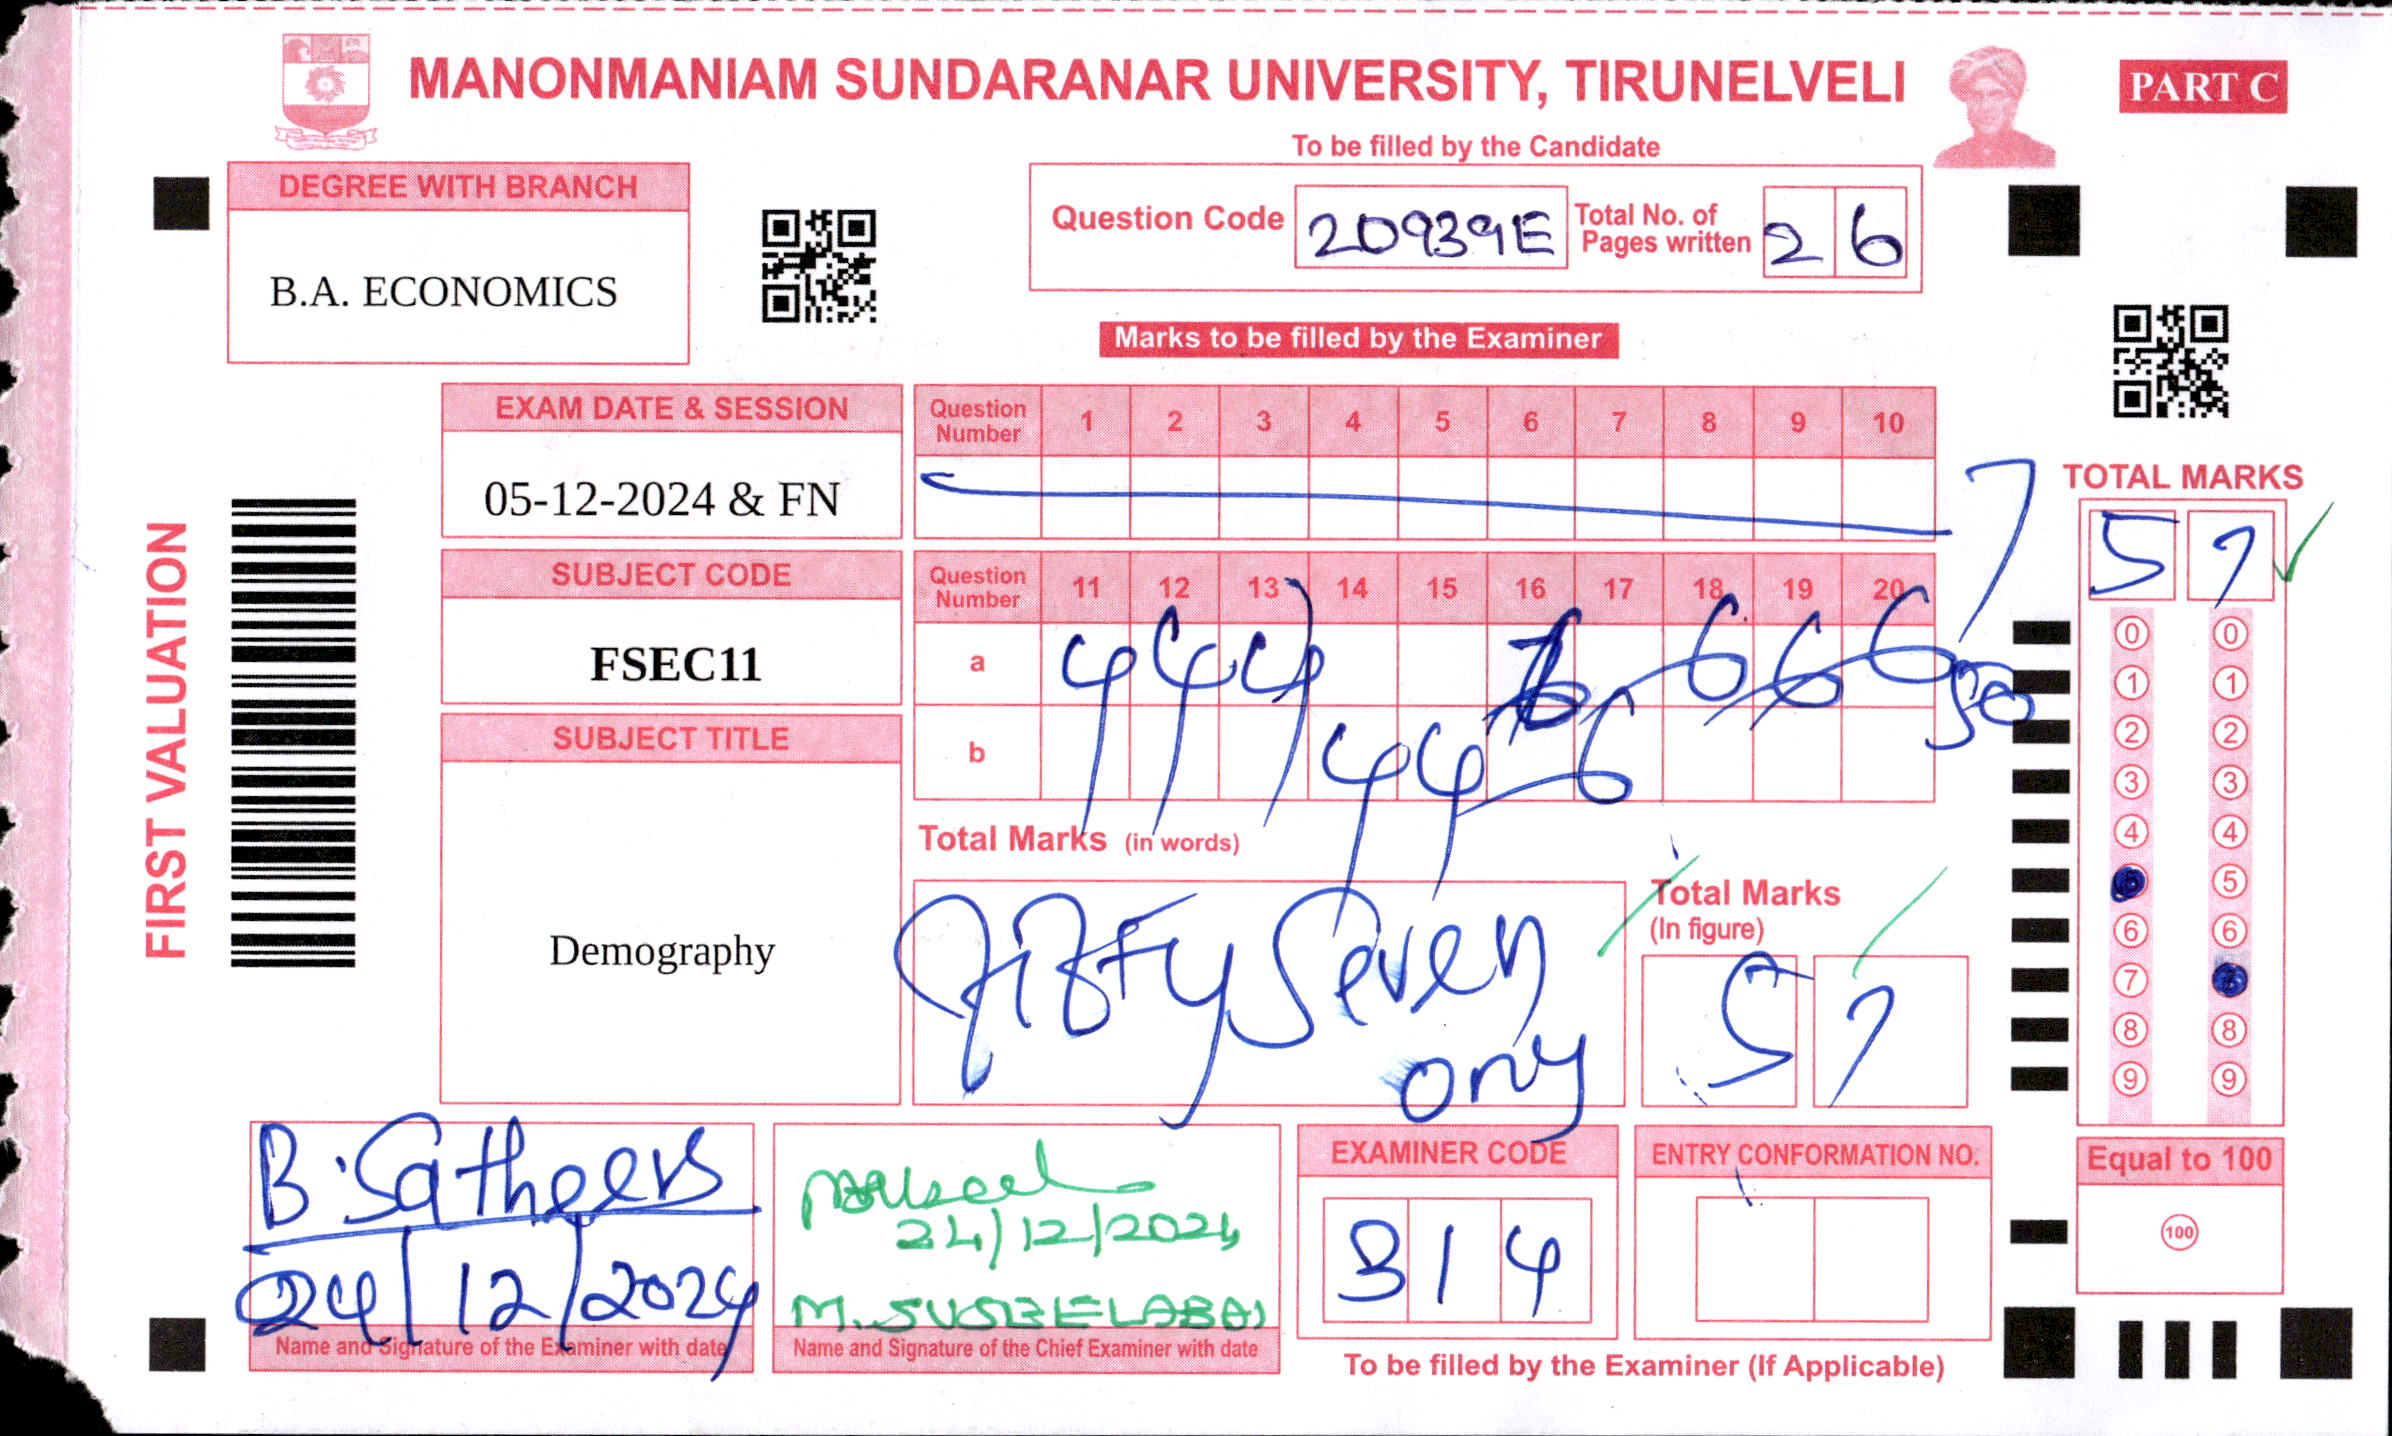 MANONMANIAM SUNDARANAR UNIVERSITY, TIRUNELVELI
PART C
To be filled by the Candidate
DEGREE WITH BRANCH
B.A. ECONOMICS
Question Code 20939E Total No. of Pages written 2 6
Marks to be filled by the Examiner
EXAM DATE & SESSION
05-12-2024 & FN
Question Number 1 2 3 4 5 6 7 8 9 10
7
TOTAL MARKS
5 7
SUBJECT CODE
FSEC11
Question Number 11 12 13 14 15 16 17 18 19 20
a 4 4 4 6 6 6 6 50
b 4 4 6
SUBJECT TITLE
Demography
FIRST VALUATION
Total Marks (in words)
Fifty Seven
ony
Total Marks
(In figure)
5 7
0 0
1 1
2 2
3 3
4 4
5
6 6
7
8 8
9 9
B. Satheers
24/12/2024
Name and Signature of the Examiner with date
24/12/2024
M. SUSEELABAI
Name and Signature of the Chief Examiner with date
EXAMINER CODE
3 1 4
ENTRY CONFORMATION NO.
To be filled by the Examiner (If Applicable)
Equal to 100
100